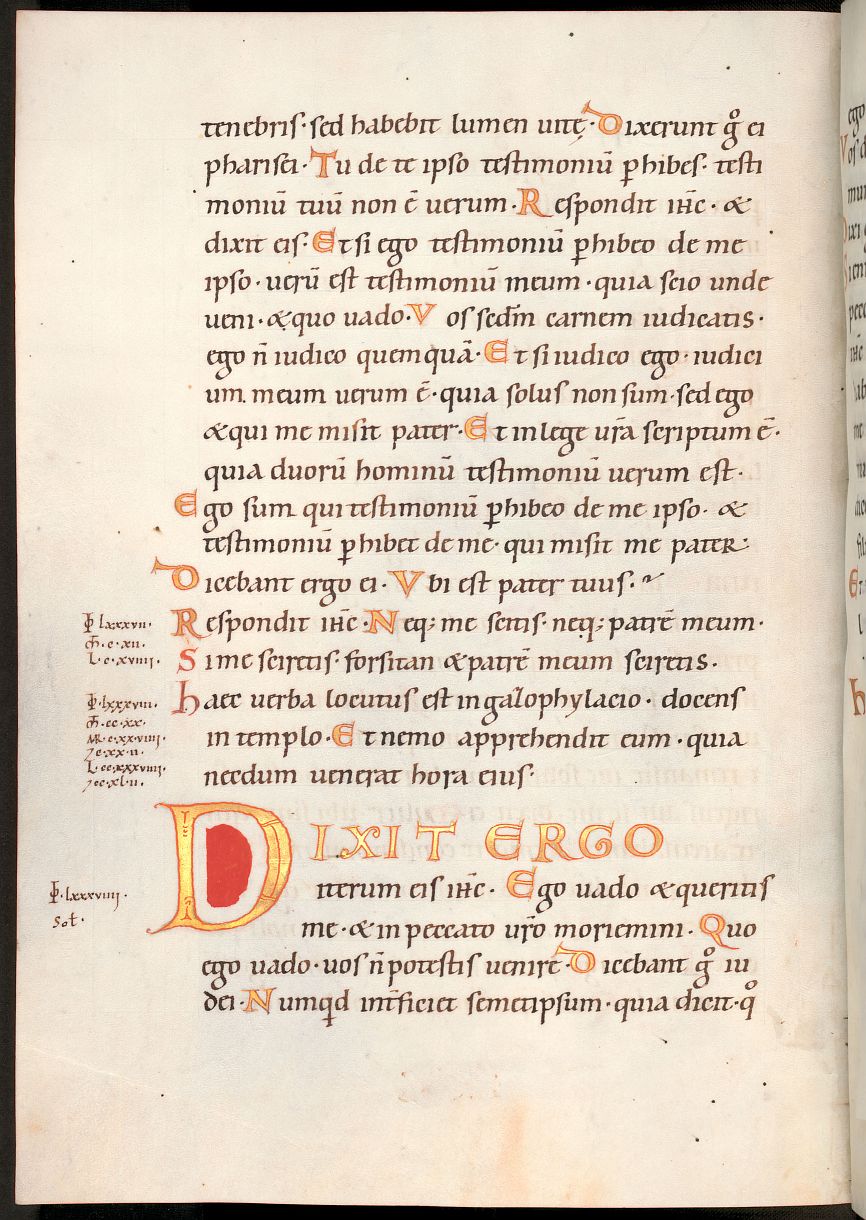 tenebris· sed habebit lumen uitę· Dixerunt gͦ ei
pharisei· Tu de te ipso testimoniū ꝑhibes· testi
moniū tuū non ē uerum· Respondit ih̄c· &
dixit eis· Et si ego testimoniū ꝑhibeo de me
ipso· uerū est testimoniū meum· quia scio unde
ueni· & quo uado· Vos sed̄m carnem iudicatis·
ego n̄ iudico quemquā· Et si iudico ego· iudici
um meum uerum ē· quia solus non sum· sed ego
& qui me misit pater· Et in lege ur̄a scriptum ē·
quia duorū hominū testimoniū uerum est·
Ego sum qui testimoniū ꝑhibeo de me ipso· &
testimoniū ꝑhibet de me· qui misit me pater·
Dicebant ergo ei· Vbi est pater tuus·
Respondit ih̄c· Neq; me scitis· neq; patrē meum·
Si me sciretis· forsitan & patrē meum sciretis·
haec verba locutus est in gazophylacio· docens
in templo· Et nemo apprehendit eum· quia
necdum uenerat hora eius·
DIXIT ERGO
iterum eis ih̄c· Ego uado & queritis
me· & in peccato ur̄o moriemini· Quo
ego uado· uos n̄ potestis uenire· Dicebant gͦ iu
dei· Numqd int̄ficiet semetipsum· quia dicit· qͦ
lxxxvii·
c·xii·
L·c·xviiii·
lxxxviii·
cc·xx·
M·c·xx·viii·
7c·xx·ii·
L·cc·xxxviiii·
7cc·xl·ii·
lxxxviiii·
Sol·